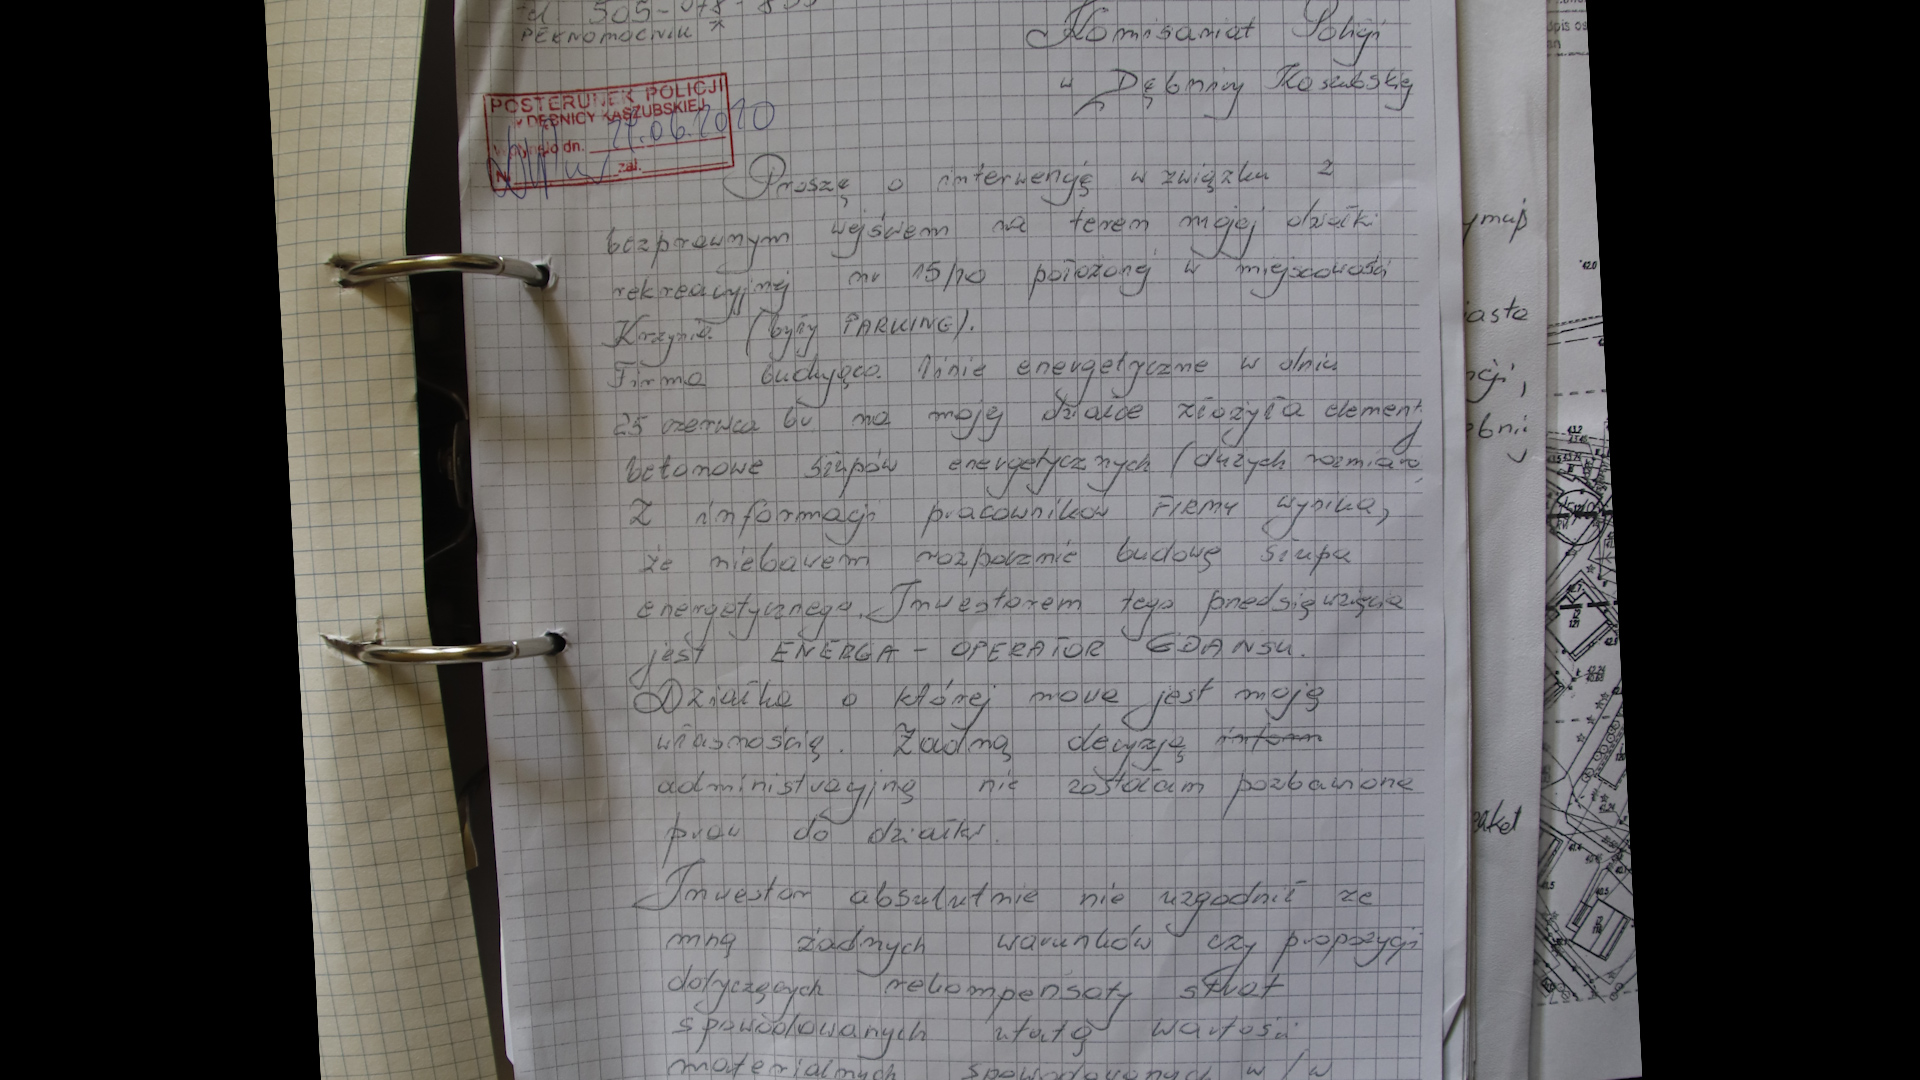 PEŁNOMOCNIK *
Komisariat Policji
w Dębnicy Kaszubskiej
POSTERUNEK POLICJI
w DĘBNICY KASZUBSKIEJ
Wpłynęło dn. 27.06.2010
Nr zał.
Proszę o interwencję w związku z
bezprawnym wejściem na teren mojej działki
rekreacyjnej nr 15/10 położonej w miejscowości
Krzynia (były PARKING).
Firma budująca linie energetyczne w dniu
25 czerwca br na mojej działce złożyła elementy
betonowe słupów energetycznych (dużych rozmiarów
Z informacji pracowników FIRMY wynika,
że niebawem rozpocznie budowę słupa
energetycznego. Inwestorem tego przedsięwzięcia
jest ENERGA - OPERATOR GDAŃSK.
Działka o której mowa jest moją
własnością. Żadną decyzją inform
administracyjną nie zostałam pozbawiona
praw do działki.
Inwestor absolutnie nie uzgodnił ze
mną żadnych warunków czy propozycji
dotyczących rekompensaty strat
spowodowanych utratą wartości
materialnych spowodowanych w/w